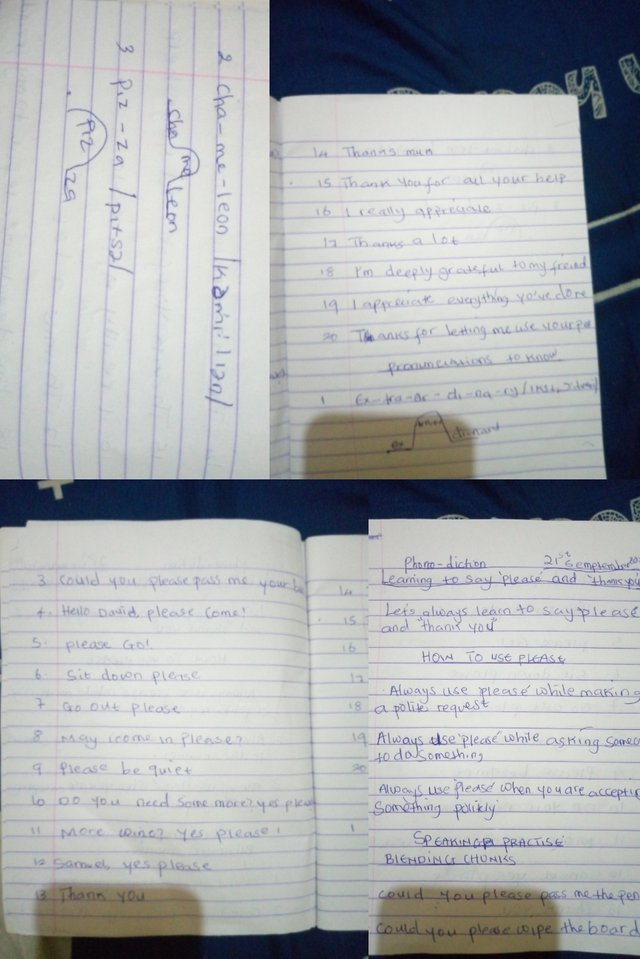 Phono-diction 21st September
Learning to say 'please' and 'thank you
Let's always learn to say please
and "thank you"
HOW TO USE PLEASE
Always use 'please' while making
a polite request
Always use 'please' while asking
to do something
Always use 'please' when you are
something politely
SPEAKING PRACTISE
BLENDING CHUNKS
could you please pass me the pen
could you please wipe the board
3 Could you please pass me your
4. Hello David, please come!
5. please Go!
6. Sit down please
7 Go out please
8 May i come in please?
9 Please be quiet
10 Do you need some more? yes
11 More wine? yes please!
12 Samuel, yes please
13 Thank you
14 Thanks mum
15 Thank you for all your help
16 I really appreciate
17 Thanks a lot
18 I'm deeply grateful to my freind
19 I appreciate everything yo've done
20 Thanks for letting me use your
pronunciations to know
1 Ex-tra-or-di-na-ry
2 Cha-me-leon
cha me leon
3 Piz-za /pitsə/
Piz za